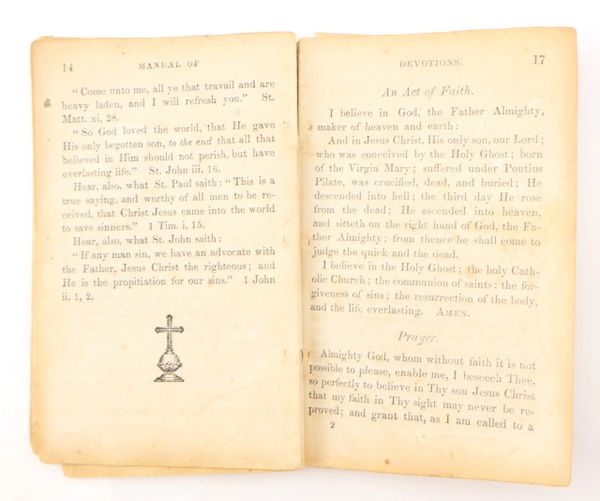 14 MANUAL OF
“Come unto me, all ye that travail and are
heavy laden, and I will refresh you.” St.
Matt. xi, 28.
“So God loved the world, that He gave
His only begotten son, to the end that all that
believed in Him should not perish, but have
everlasting life.” St. John iii, 16.
Hear, also, what St. Paul saith: “This is a
true saying, and worthy of all men to be re-
ceived, that Christ Jesus came into the world
to save sinners.” 1 Tim. i, 15.
Hear, also, what St. John saith:
“If any man sin, we have an advocate with
the Father, Jesus Christ the righteous; and
He is the propitiation for our sins.” 1 John
ii, 1, 2.
DEVOTIONS. 17
An Act of Faith.
I believe in God, the Father Almighty,
maker of heaven and earth:
And in Jesus Christ, His only son, our Lord;
who was conceived by the Holy Ghost; born
of the Virgin Mary; suffered under Pontius
Pilate, was crucified, dead, and buried; He
descended into hell; the third day He rose
from the dead; He ascended into heaven,
and sitteth on the right hand of God, the Fa-
ther Almighty; from thence he shall come to
judge the quick and the dead.
I believe in the Holy Ghost; the holy Cath-
olic Church; the communion of saints; the for-
giveness of sins; the resurrection of the body,
and the life everlasting. AMEN.
Prayer.
Almighty God, whom without faith it is not
possible to please, enable me, I beseech Thee,
so perfectly to believe in Thy son Jesus Christ
that my faith in Thy sight may never be re-
proved; and grant that, as I am called to a
2